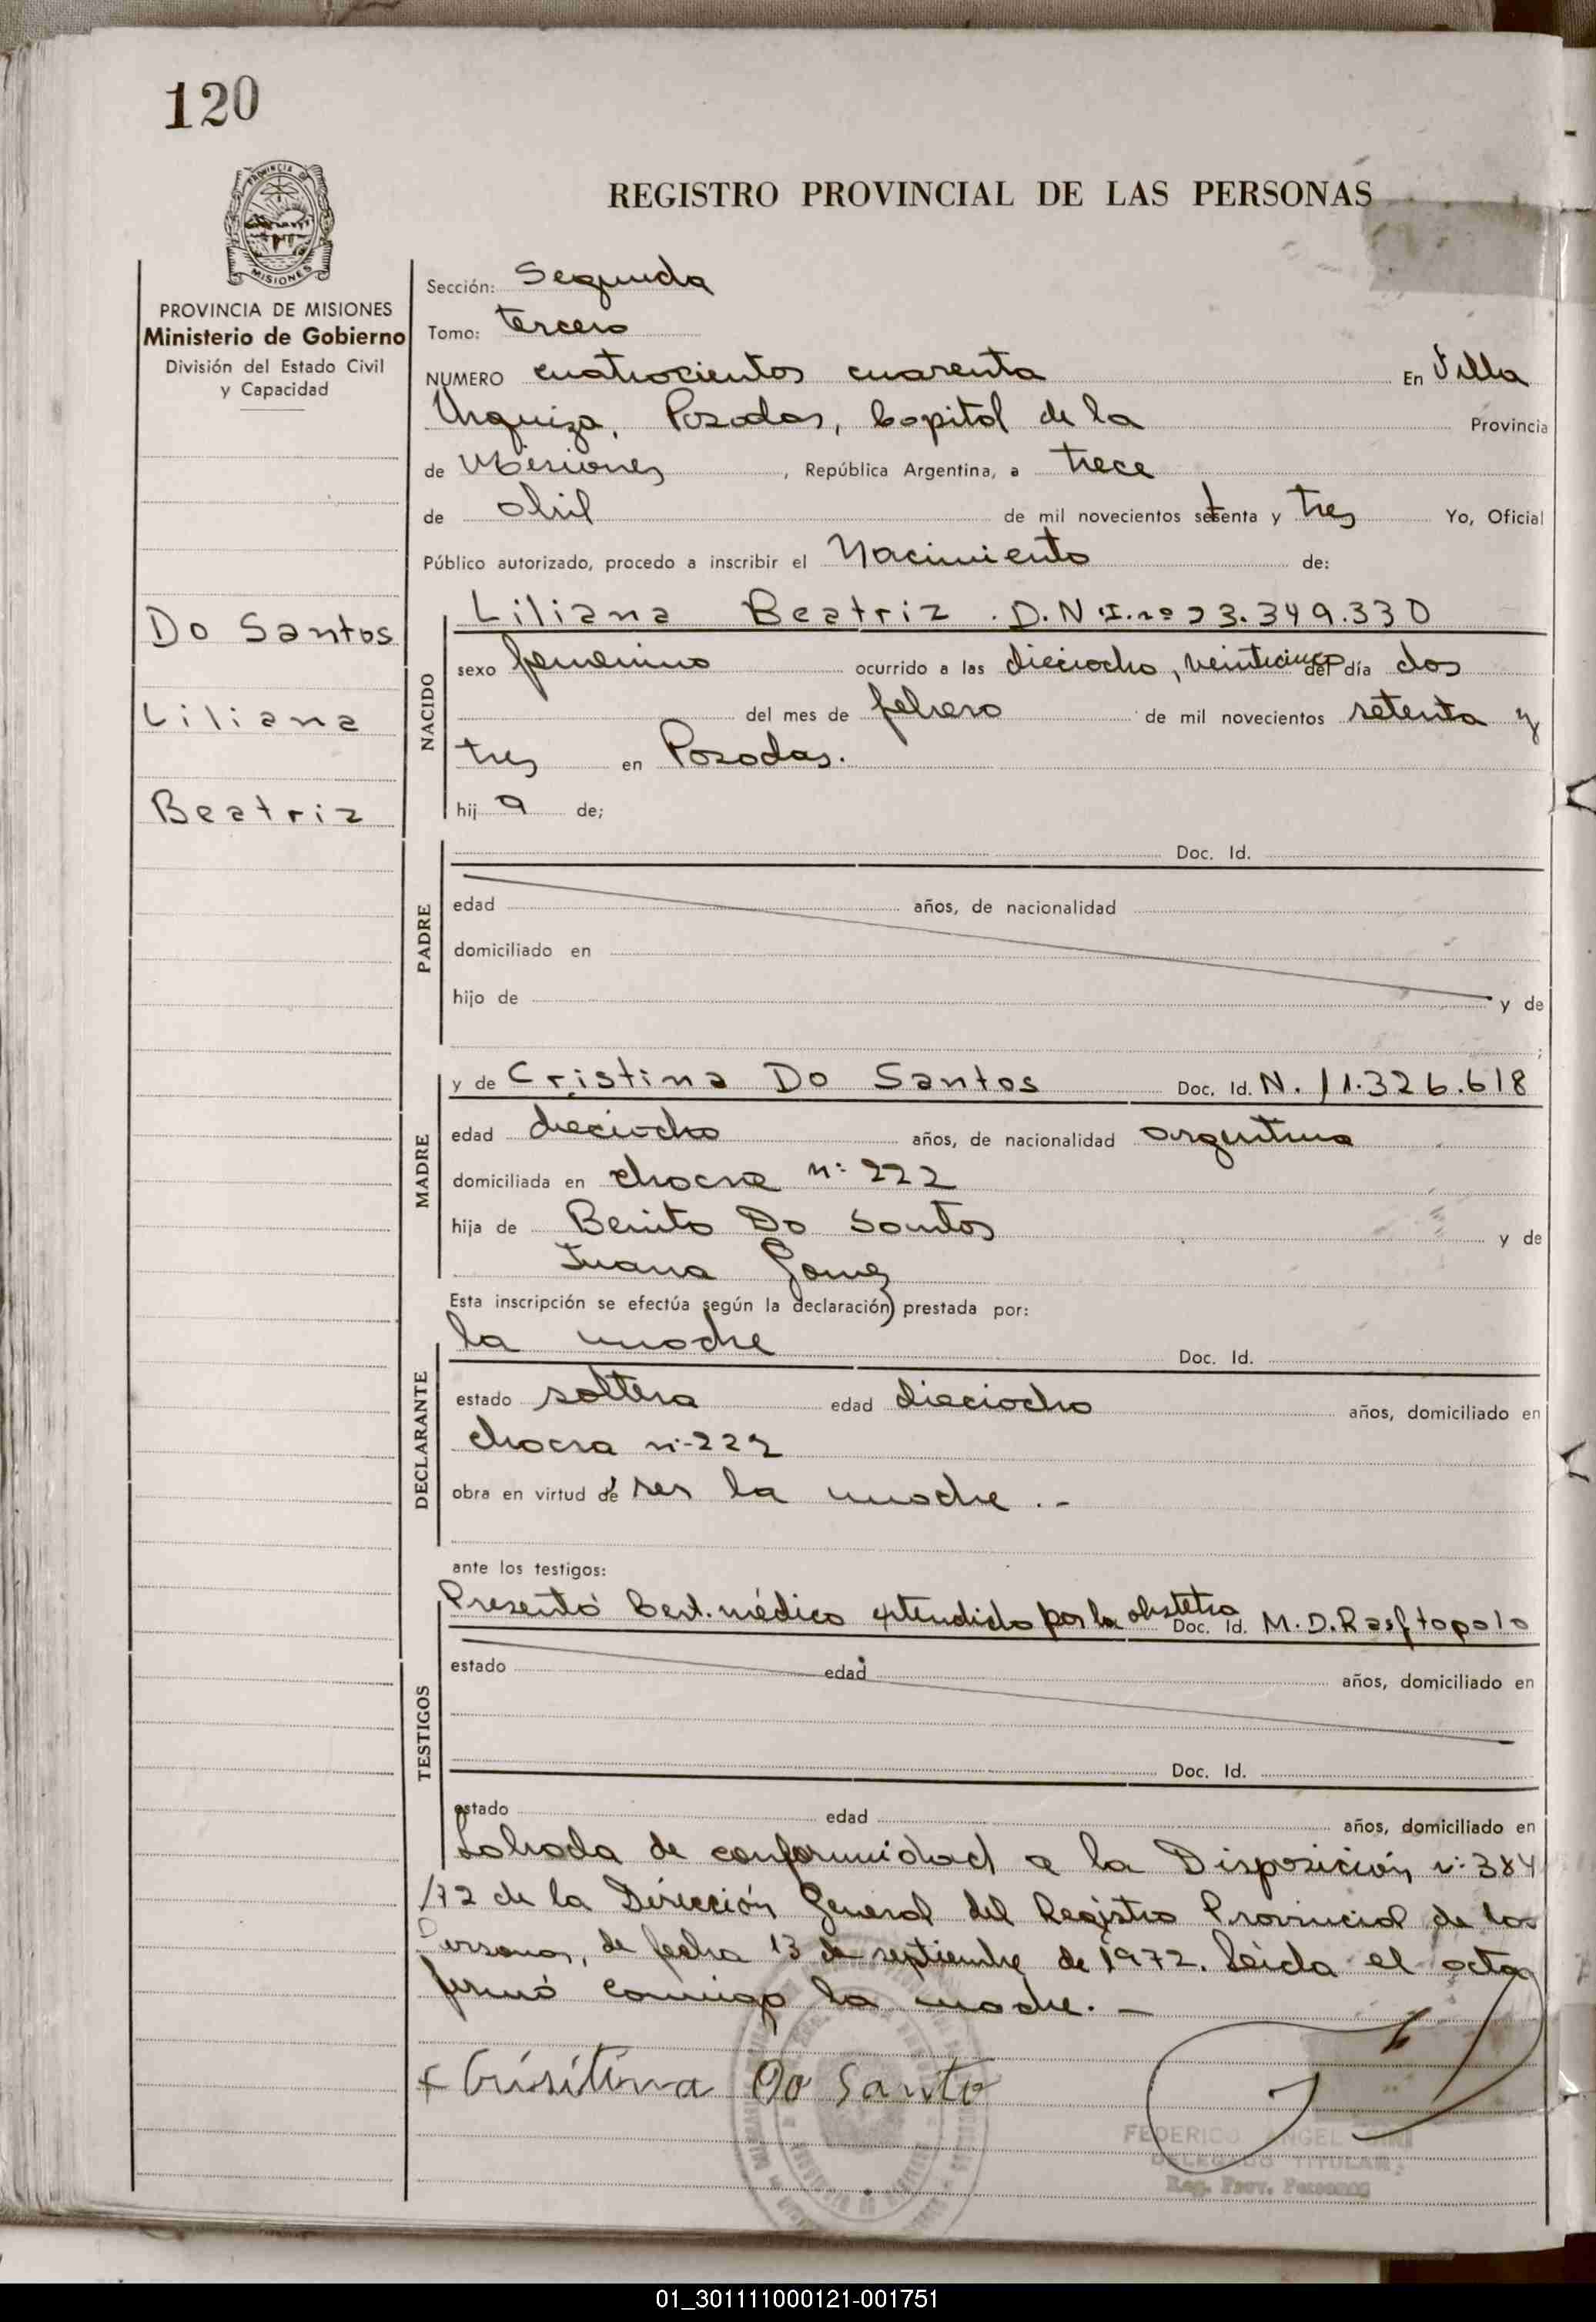 120
PROVINCIA DE
MISIONES
REGISTRO PROVINCIAL DE LAS PERSONAS
PROVINCIA DE MISIONES
Ministerio de Gobierno
División del Estado Civil
y Capacidad
Do Santos
Liliana
Beatriz
Sección: Segunda
Tomo: tercero
NUMERO cuatrocientos cuarenta En Villa
Urquiza, Posadas, Capital de la Provincia
de Misiones, República Argentina, a trece
de abril de mil novecientos setenta y tres Yo, Oficial
Público autorizado, procedo a inscribir el Nacimiento de:
NACIDO
Liliana Beatriz . D.N.I. nº 23.349.330
sexo femenino ocurrido a las dieciocho, veinticinco del día dos
del mes de febrero de mil novecientos setenta y
tres en Posadas.
hij a de;
PADRE
Doc. Id.
edad años, de nacionalidad
domiciliado en
hijo de y de
;
MADRE
y de Cristina Do Santos Doc. Id. N. 11.326.618
edad dieciocho años, de nacionalidad argentina
domiciliada en chacra nº 222
hija de Benito Do Santos y de
Juana Gomez
Esta inscripción se efectúa según la declaración prestada por:
DECLARANTE
la madre Doc. Id.
estado soltera edad dieciocho años, domiciliado en
chacra nº 222
obra en virtud de ser la madre . -
ante los testigos:
TESTIGOS
Presentó Cert. médico extendido por la obstetra Doc. Id. M.D.Rasftopolo
estado edad años, domiciliado en
Doc. Id.
estado edad años, domiciliado en
Labrada de conformidad a la Disposición nº 384
/72 de la Dirección General del Registro Provincial de las
Personas, de fecha 13 de septiembre de 1972. Leída el acta
firmó conmigo la madre. -
x Crisitina Do Santo
FEDERICO ANGEL
DELEGADO TITULAR
Reg. Prov. Personas
01_301111000121-001751